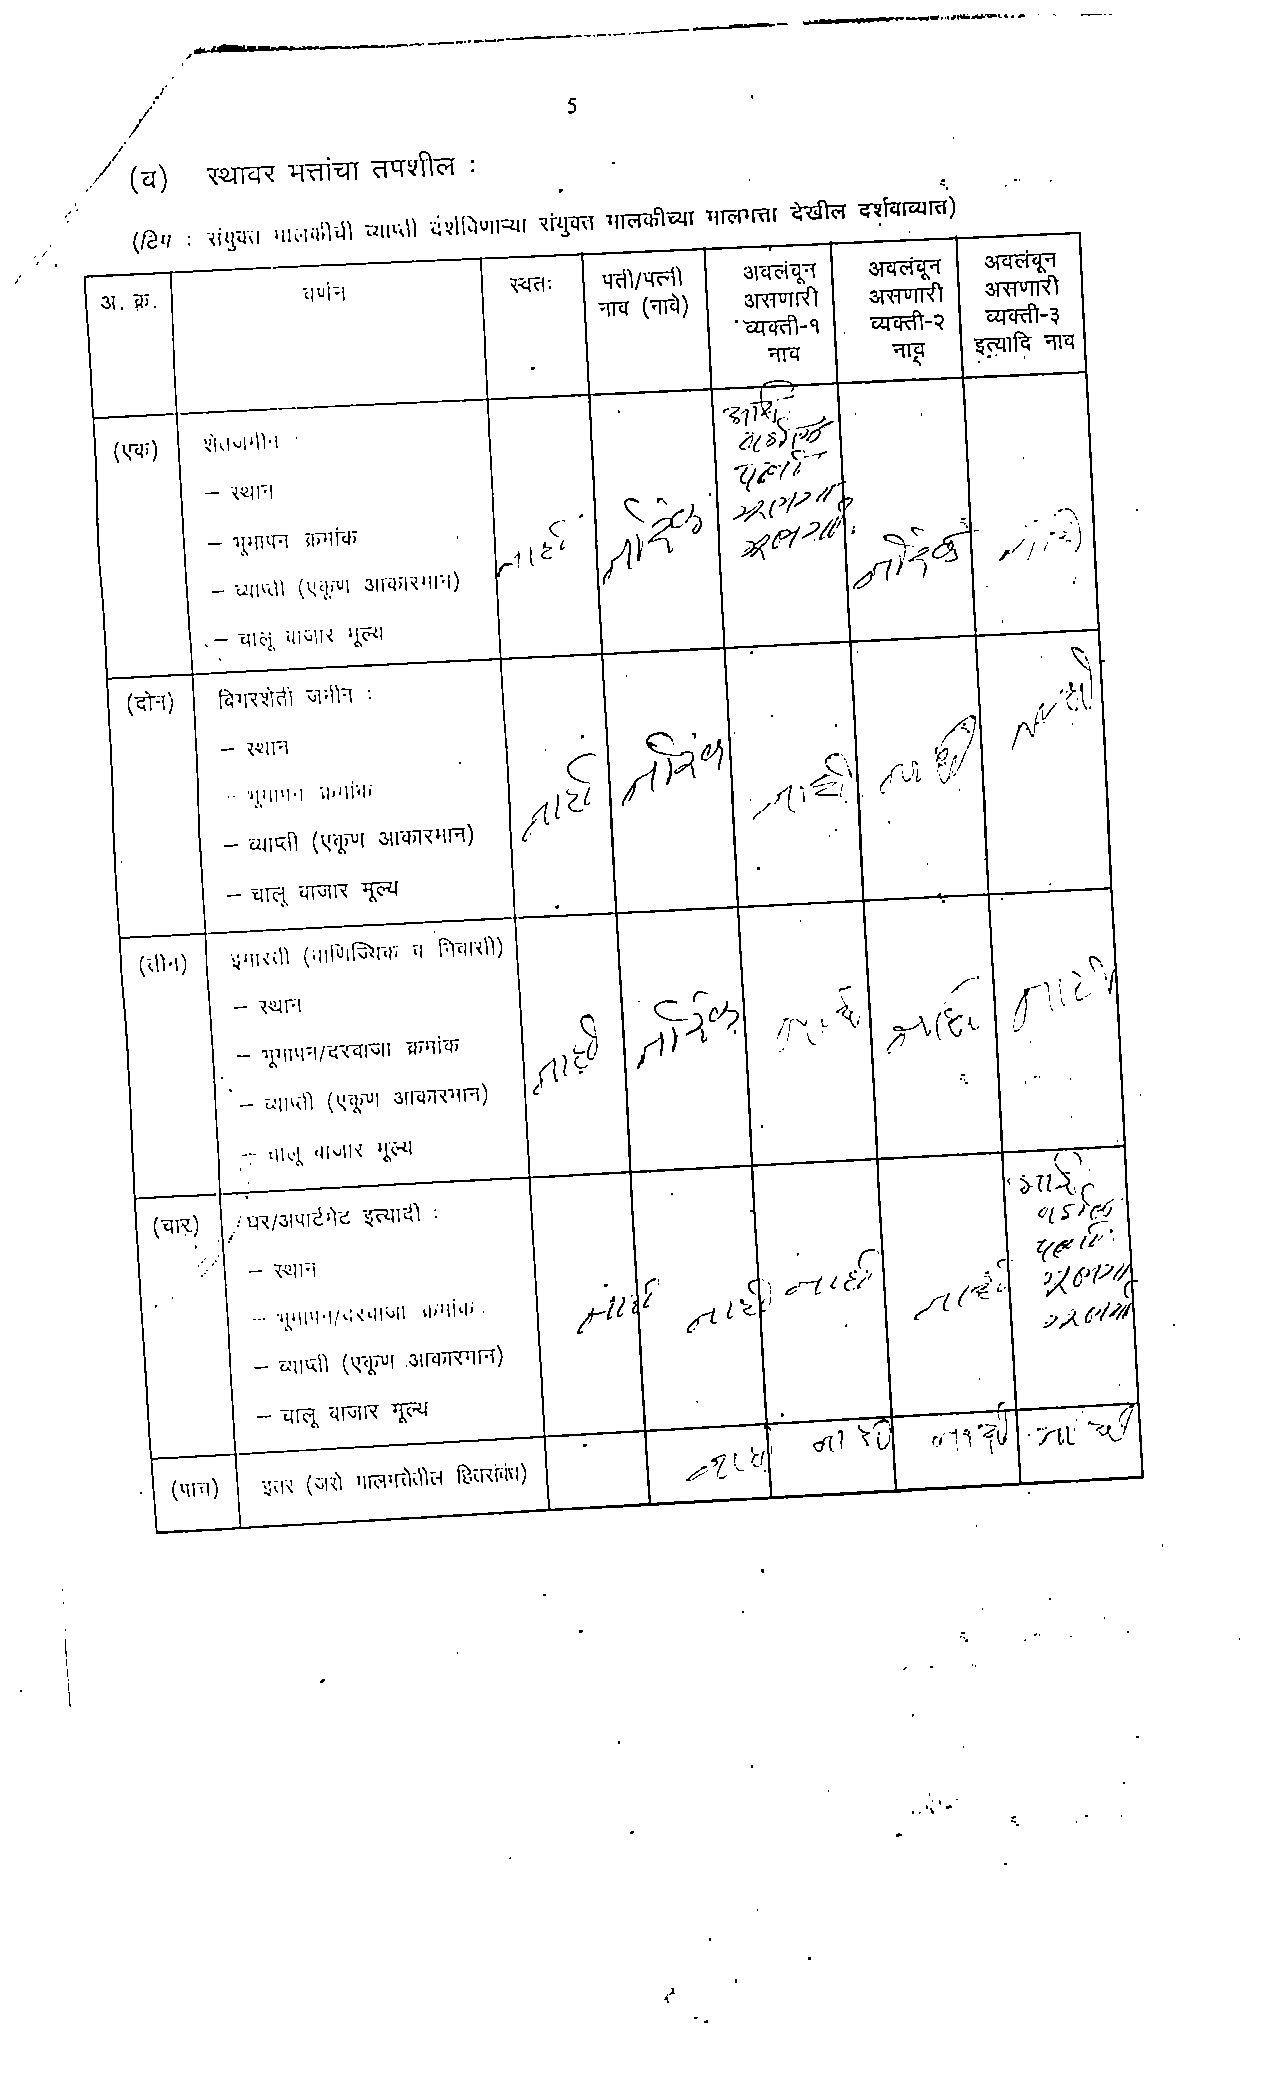 5
(ब) स्थावर मत्तांचा तपशील :
(टिप : संयुक्त मालकीची व्याप्ती दर्शविणाऱ्या संयुक्त मालकीच्या मालमत्ता देखील दर्शवाव्यात)
अ. क्र.
वर्णन
स्वतः
पती/पत्नी
नाव (नावे)
अवलंबून
असणारी
व्यक्ती-१
नाव
अवलंबून
असणारी
व्यक्ती-२
नाव
अवलंबून
असणारी
व्यक्ती-३
इत्यादि नाव
(एक) शेतजमीन
– स्थान
– भूमापन क्रमांक
– व्याप्ती (एकूण आकारमान)
– चालू बाजार मूल्य
नाही
वडील
पत्नी
मुलगा
नाही
(दोन) बिगरशेती जमीन :
– स्थान
– भूमापन क्रमांक
– व्याप्ती (एकूण आकारमान)
– चालू बाजार मूल्य
नाही नाही नाही नाही
(तीन) इमारती (वाणिज्यिक व निवासी)
– स्थान
– भूमापन/दरवाजा क्रमांक
– व्याप्ती (एकूण आकारमान)
– चालू बाजार मूल्य
नाही नाही नाही नाही
(चार) घर/अपार्टमेंट इत्यादी :
– स्थान
– भूमापन/दरवाजा क्रमांक
– व्याप्ती (एकूण आकारमान)
– चालू बाजार मूल्य
नाही नाही नाही नाही
वडील
पत्नी
मुलगा
(पाच) इतर (जसे मालमत्तेतील हितसंबंध)
नाही नाही नाही नाही